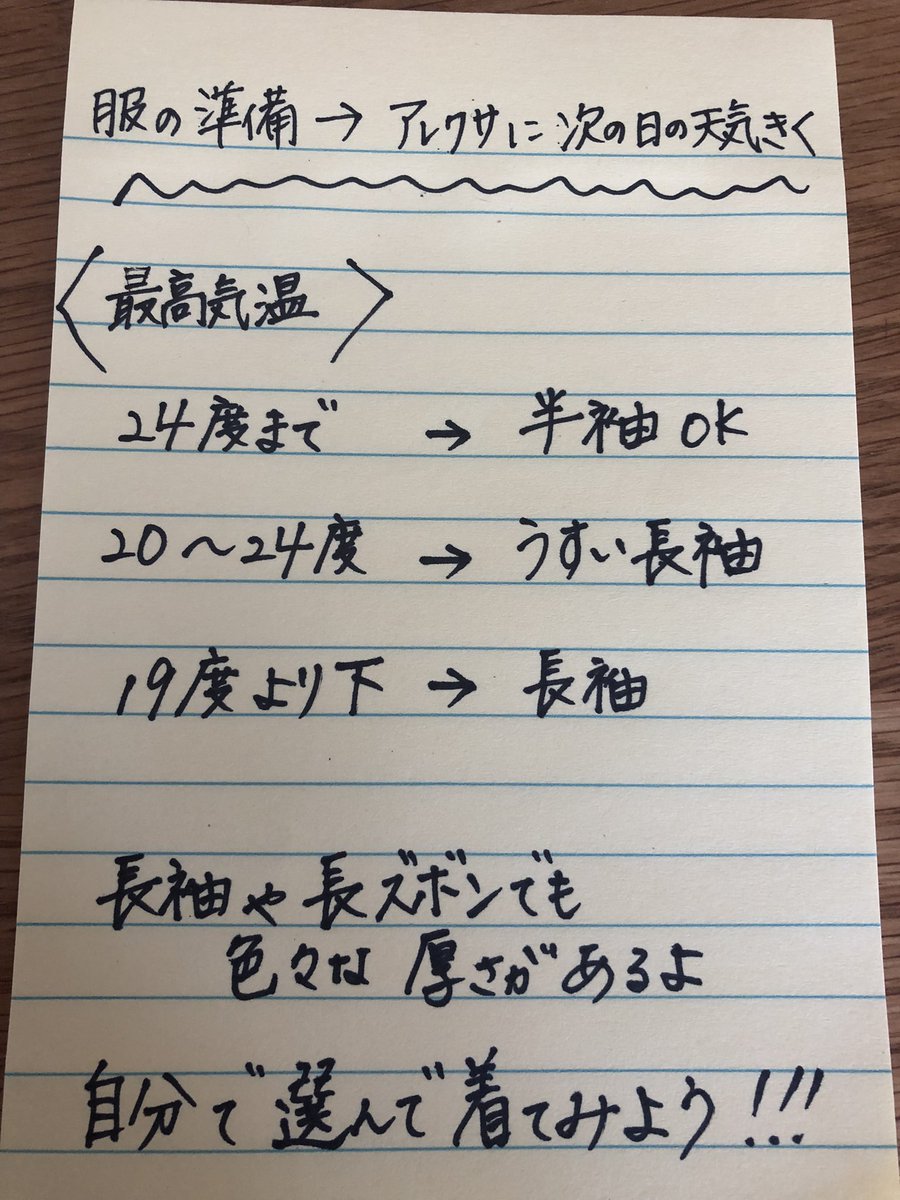 服の準備→アレクサに次の日の天気きく
〈最高気温〉
24度まで → 半袖OK
20〜24度 → うすい長袖
19度より下 → 長袖
長袖や長ズボンでも
色々な厚さがあるよ
自分で選んで着てみよう!!!